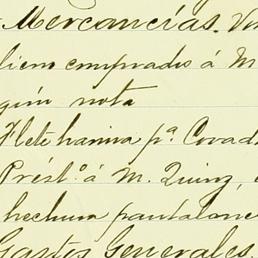 Mercancías. Vn
lienc comprados á M
gún nota
Flete harina pª Covad
Présto á M. Quinz,
hechura pantalone
Gastos Generales.